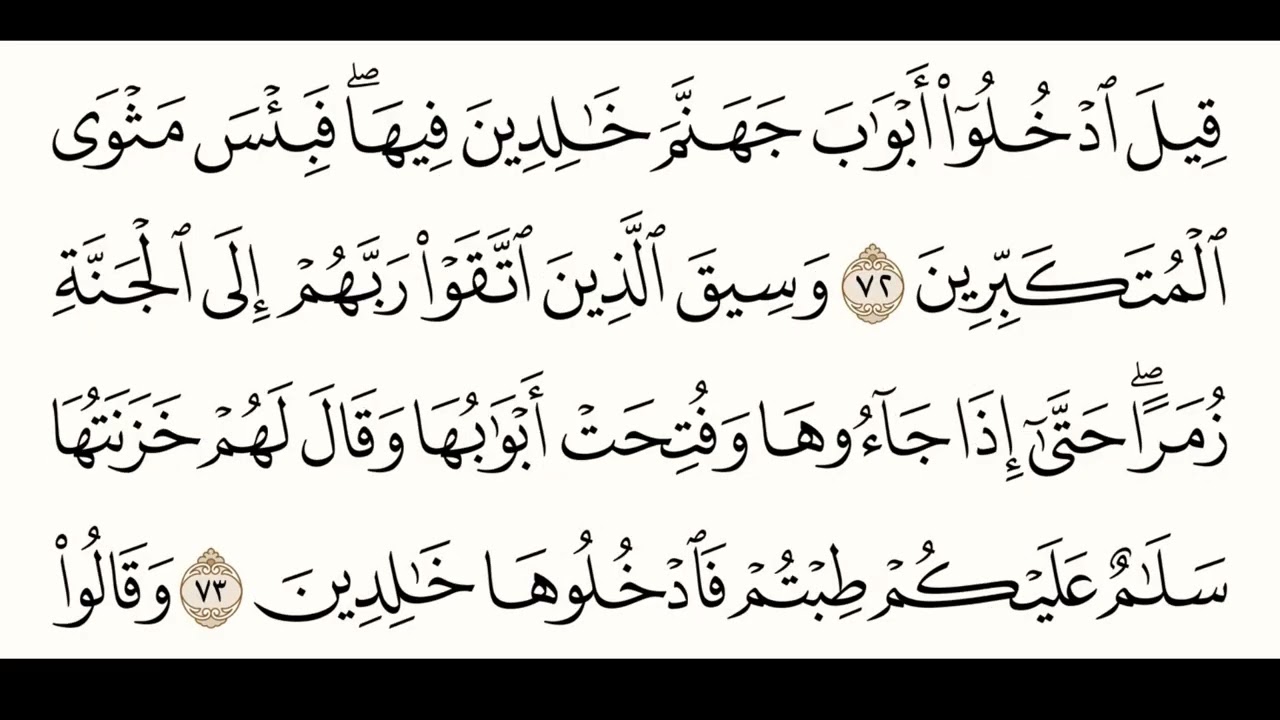 قِيلَ ٱدۡخُلُوٓاْ أَبۡوَٰبَ جَهَنَّمَ خَٰلِدِينَ فِيهَاۖ فَبِئۡسَ مَثۡوَى
ٱلۡمُتَكَبِّرِينَ ٧٢ وَسِيقَ ٱلَّذِينَ ٱتَّقَوۡاْ رَبَّهُمۡ إِلَى ٱلۡجَنَّةِ
زُمَرًاۖ حَتَّىٰٓ إِذَا جَآءُوهَا وَفُتِحَتۡ أَبۡوَٰبُهَا وَقَالَ لَهُمۡ خَزَنَتُهَا
سَلَٰمٌ عَلَيۡكُمۡ طِبۡتُمۡ فَٱدۡخُلُوهَا خَٰلِدِينَ ٧٣ وَقَالُواْ